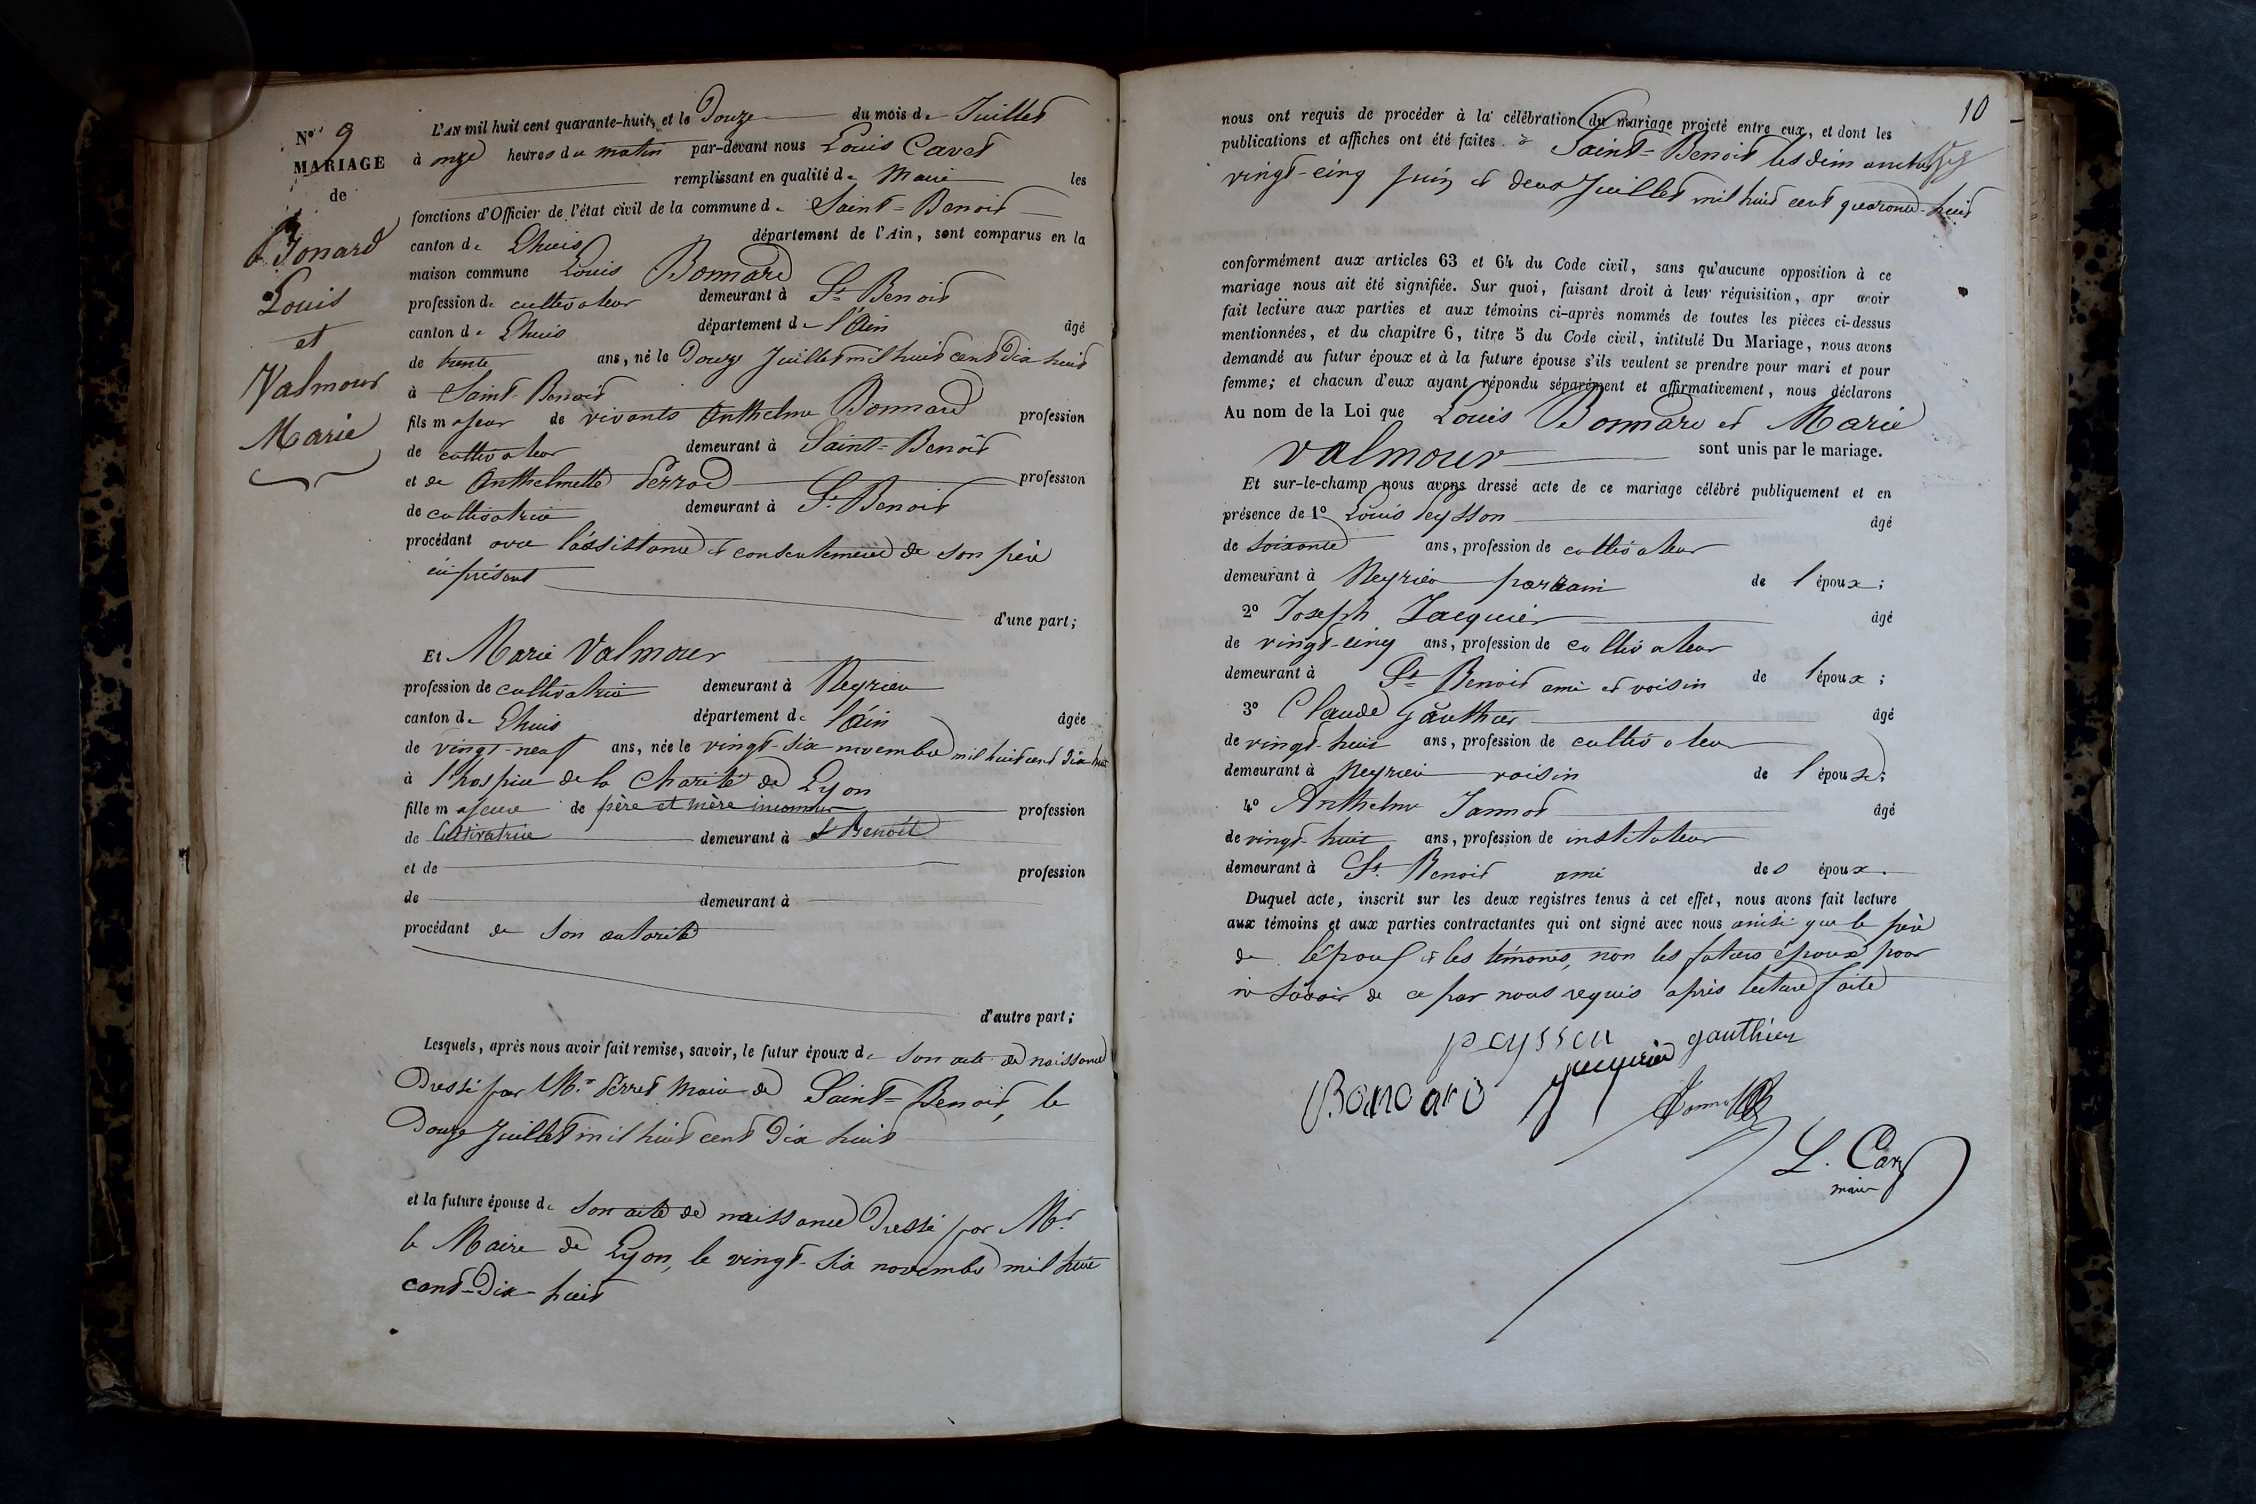 N° 9
MARIAGE
de
Bonard
Louis
et
Valmour
Marie
L'AN mil huit cent quarante-huit, et le Douze du mois de Juillet
à onze heures du matin par-devant nous Louis Cavet
remplissant en qualité de Maire les
fonctions d'Officier de l'état civil de la commune de Saint-Benoit
canton de Lhuis département de l'Ain, sont comparus en la
maison commune Louis Bonnard
profession de cultivateur demeurant à St Benoit
canton de Lhuis département de l'Ain âgé
de trente ans, né le Douze Juillet mil huit cent Dix huit
à Saint-Benoit
fils majeur de vivants Anthelme Bonnard profession
de cultivateur demeurant à Saint-Benoit
et de Anthelmette Perrod profession
de cultivatrice demeurant à St Benoit
procédant avec l'assistance et consentement de son père
ici présent
d'une part;
Et Marie Valmour
profession de cultivatrice demeurant à Neyrieu
canton de Lhuis département de l'Ain âgée
de vingt-neuf ans, née le vingt-six novembre mil huit cent dix-huit
à l'hospice de la Charité de Lyon
fille majeure de père et mère inconnus profession
de Cultivatrice demeurant à St Benoît
et de profession
de demeurant à
procédant de son autorité
d'autre part;
Lesquels, après nous avoir fait remise, savoir, le futur époux de son acte de naissance
Dressé par Mr. Perret Maire de Saint-Benoit, le
Douze Juillet mil huit cent Dix huit
et la future épouse de son acte de naissance Dressé par Mr.
le Maire de Lyon, le vingt-six novembre mil huit
cent-Dix-huit
10
nous ont requis de procéder à la célébration du mariage projeté entre eux, et dont les
publications et affiches ont été faites à Saint-Benoit les dimanches
vingt-cinq juin et deux Juillet mil huit cent quarante-huit
conformément aux articles 63 et 64 du Code civil, sans qu'aucune opposition à ce
mariage nous ait été signifiée. Sur quoi, faisant droit à leur réquisition, apr avoir
fait lecture aux parties et aux témoins ci-après nommés de toutes les pièces ci-dessus
mentionnées, et du chapitre 6, titre 5 du Code civil, intitulé Du Mariage, nous avons
demandé au futur époux et à la future épouse s'ils veulent se prendre pour mari et pour
femme; et chacun d'eux ayant répondu séparément et affirmativement, nous déclarons
Au nom de la Loi que Louis Bonnard et Marie
Valmour sont unis par le mariage.
Et sur-le-champ nous avons dressé acte de ce mariage célébré publiquement et en
présence de 1° Louis Peysson âgé
de soixante ans, profession de cultivateur
demeurant à Neyrieu parrain de l'époux;
2° Joseph Jacquier âgé
de vingt-cinq ans, profession de cultivateur
demeurant à St Benoit ami et voisin de l'époux;
3° Claude Gauthier âgé
de vingt-huit ans, profession de cultivateur
demeurant à Neyrieu voisin de l'époux;
4° Anthelme Jannot âgé
de vingt-huit ans, profession de instituteur
demeurant à St. Benoit ami des époux.
Duquel acte, inscrit sur les deux registres tenus à cet effet, nous avons fait lecture
aux témoins et aux parties contractantes qui ont signé avec nous ainsi que le père
de l'époux et les témoins, non les futurs époux pour
ne savoir de ce par nous requis après lecture faite
peysson gauthier
Jacquier
Bonnard
Jannot
L. Cavet
maire